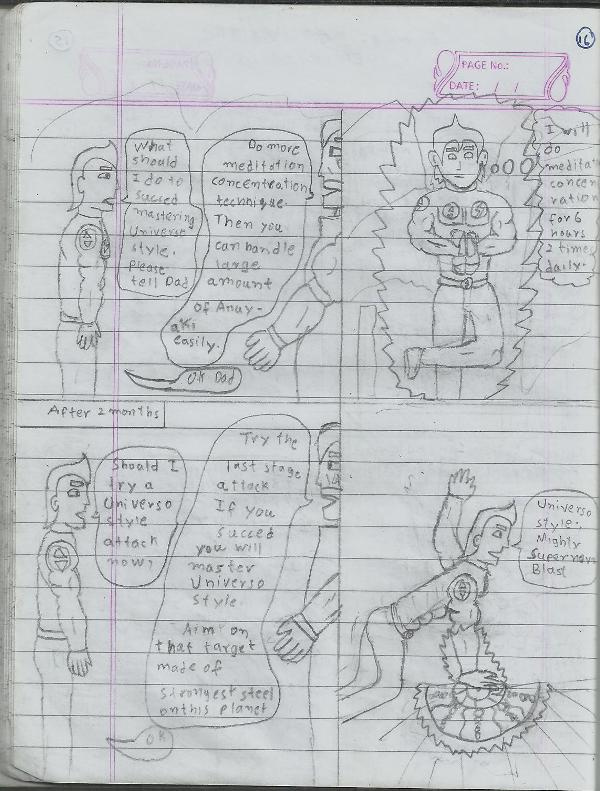 16
PAGE No.:
DATE: / /
What
should
I do to
succed
mastering
Universo
style.
please
tell Dad
Do more
meditation
concentration
technique.
Then you
can handle
large
amount
of Anay-
aki
easily.
OK Dad
I will
do
medita
concen
ration
for 6
hours
2 times
daily.
After 2 months
Should I
try a
Universo
style
attack
now?
Try the
last stage
attack
If you
succed
you will
master
Universo
style.
Aim on
that target
made of
strongest steel
on this planet
OK
Universo
style.
Mighty
Supernova
Blast